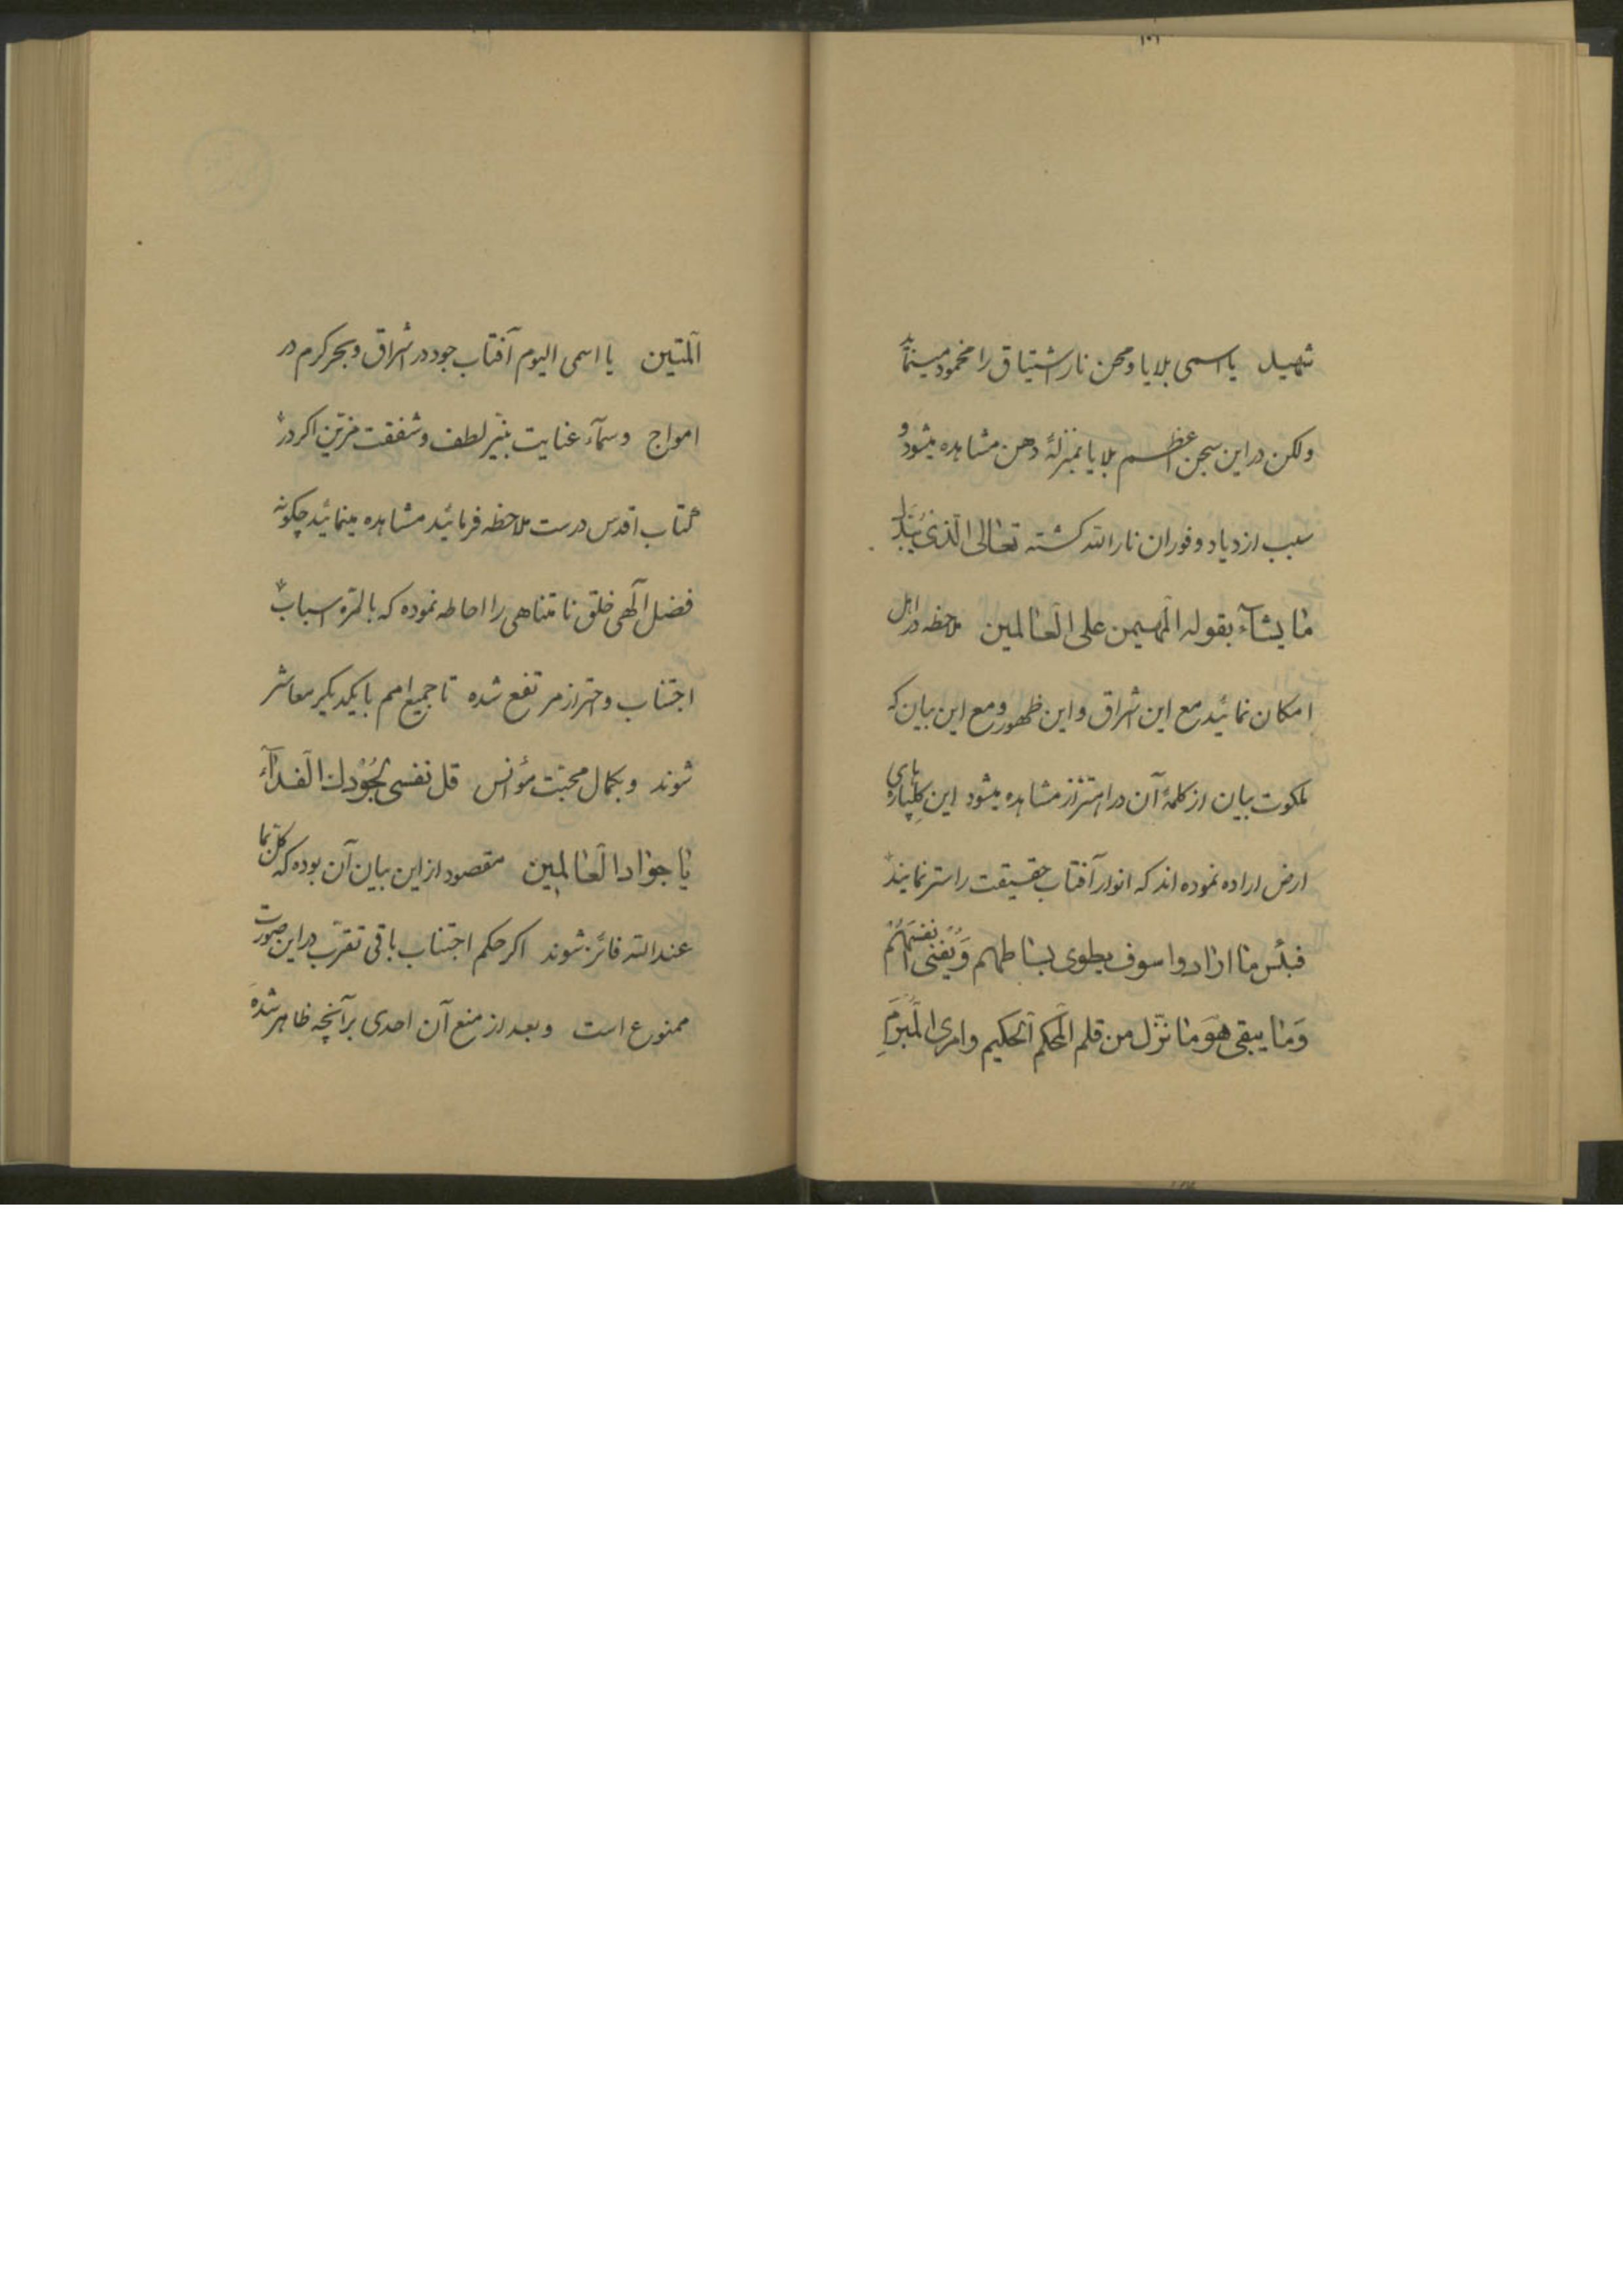 ١٠١
شهیل یا اسمی بلایا و محن نار اشتیاق را مخمود مینماید
ولکن در این سجن اعظم بلایا بمنزلهٔ دهن مشاهده میشود و
سبب ازدیاد و فوران نار الله کشته تعالی الّذی یُبَدِّل
ما یشآء بقوله المهیمن علی العالمین ملاحظه در اهل
امکان نمائید مع این اشراق و این ظهور و مع این بیان که
ملکوت بیان از کلمهٔ آن در اهتزاز مشاهده میشود این کلپاره‌های
ارض اراده نموده‌اند که انوار آفتاب حقیقت را ستر نمایند
فبئس ما ارادوا سوف یطوی بساطهم وَیُفنی انفسَهُم
وَما یبقی هُوَ ما نزّل من قلم المحکم الحکیم وامری المُبرَمِ
المتین یا اسمی الیوم آفتاب جود در اشراق و بحر کرم در
امواج و سمآء عنایت بنیّر لطف و شفقت مزیّن اکر در
کتاب اقدس درست ملاحظه فرمائید مشاهده مینمائید چکونه
فضل الهی خلق نامتناهی را احاطه نموده که بالمرّه اسباب
اجتناب و احتراز مرتفع شده تا جمیع امم با یکدیکر معاشر
شوند و بکمال محبّت مؤانس قل نفسی لجُوْدِك الفدآء
یا جواد العالمین مقصود از این بیان آن بوده که کلّ بما
عند الله فائز شوند اکر حکم اجتناب باقی تقرّب در این صورت
ممنوع است و بعد از منع آن احدی بر آنچه ظاهر شده